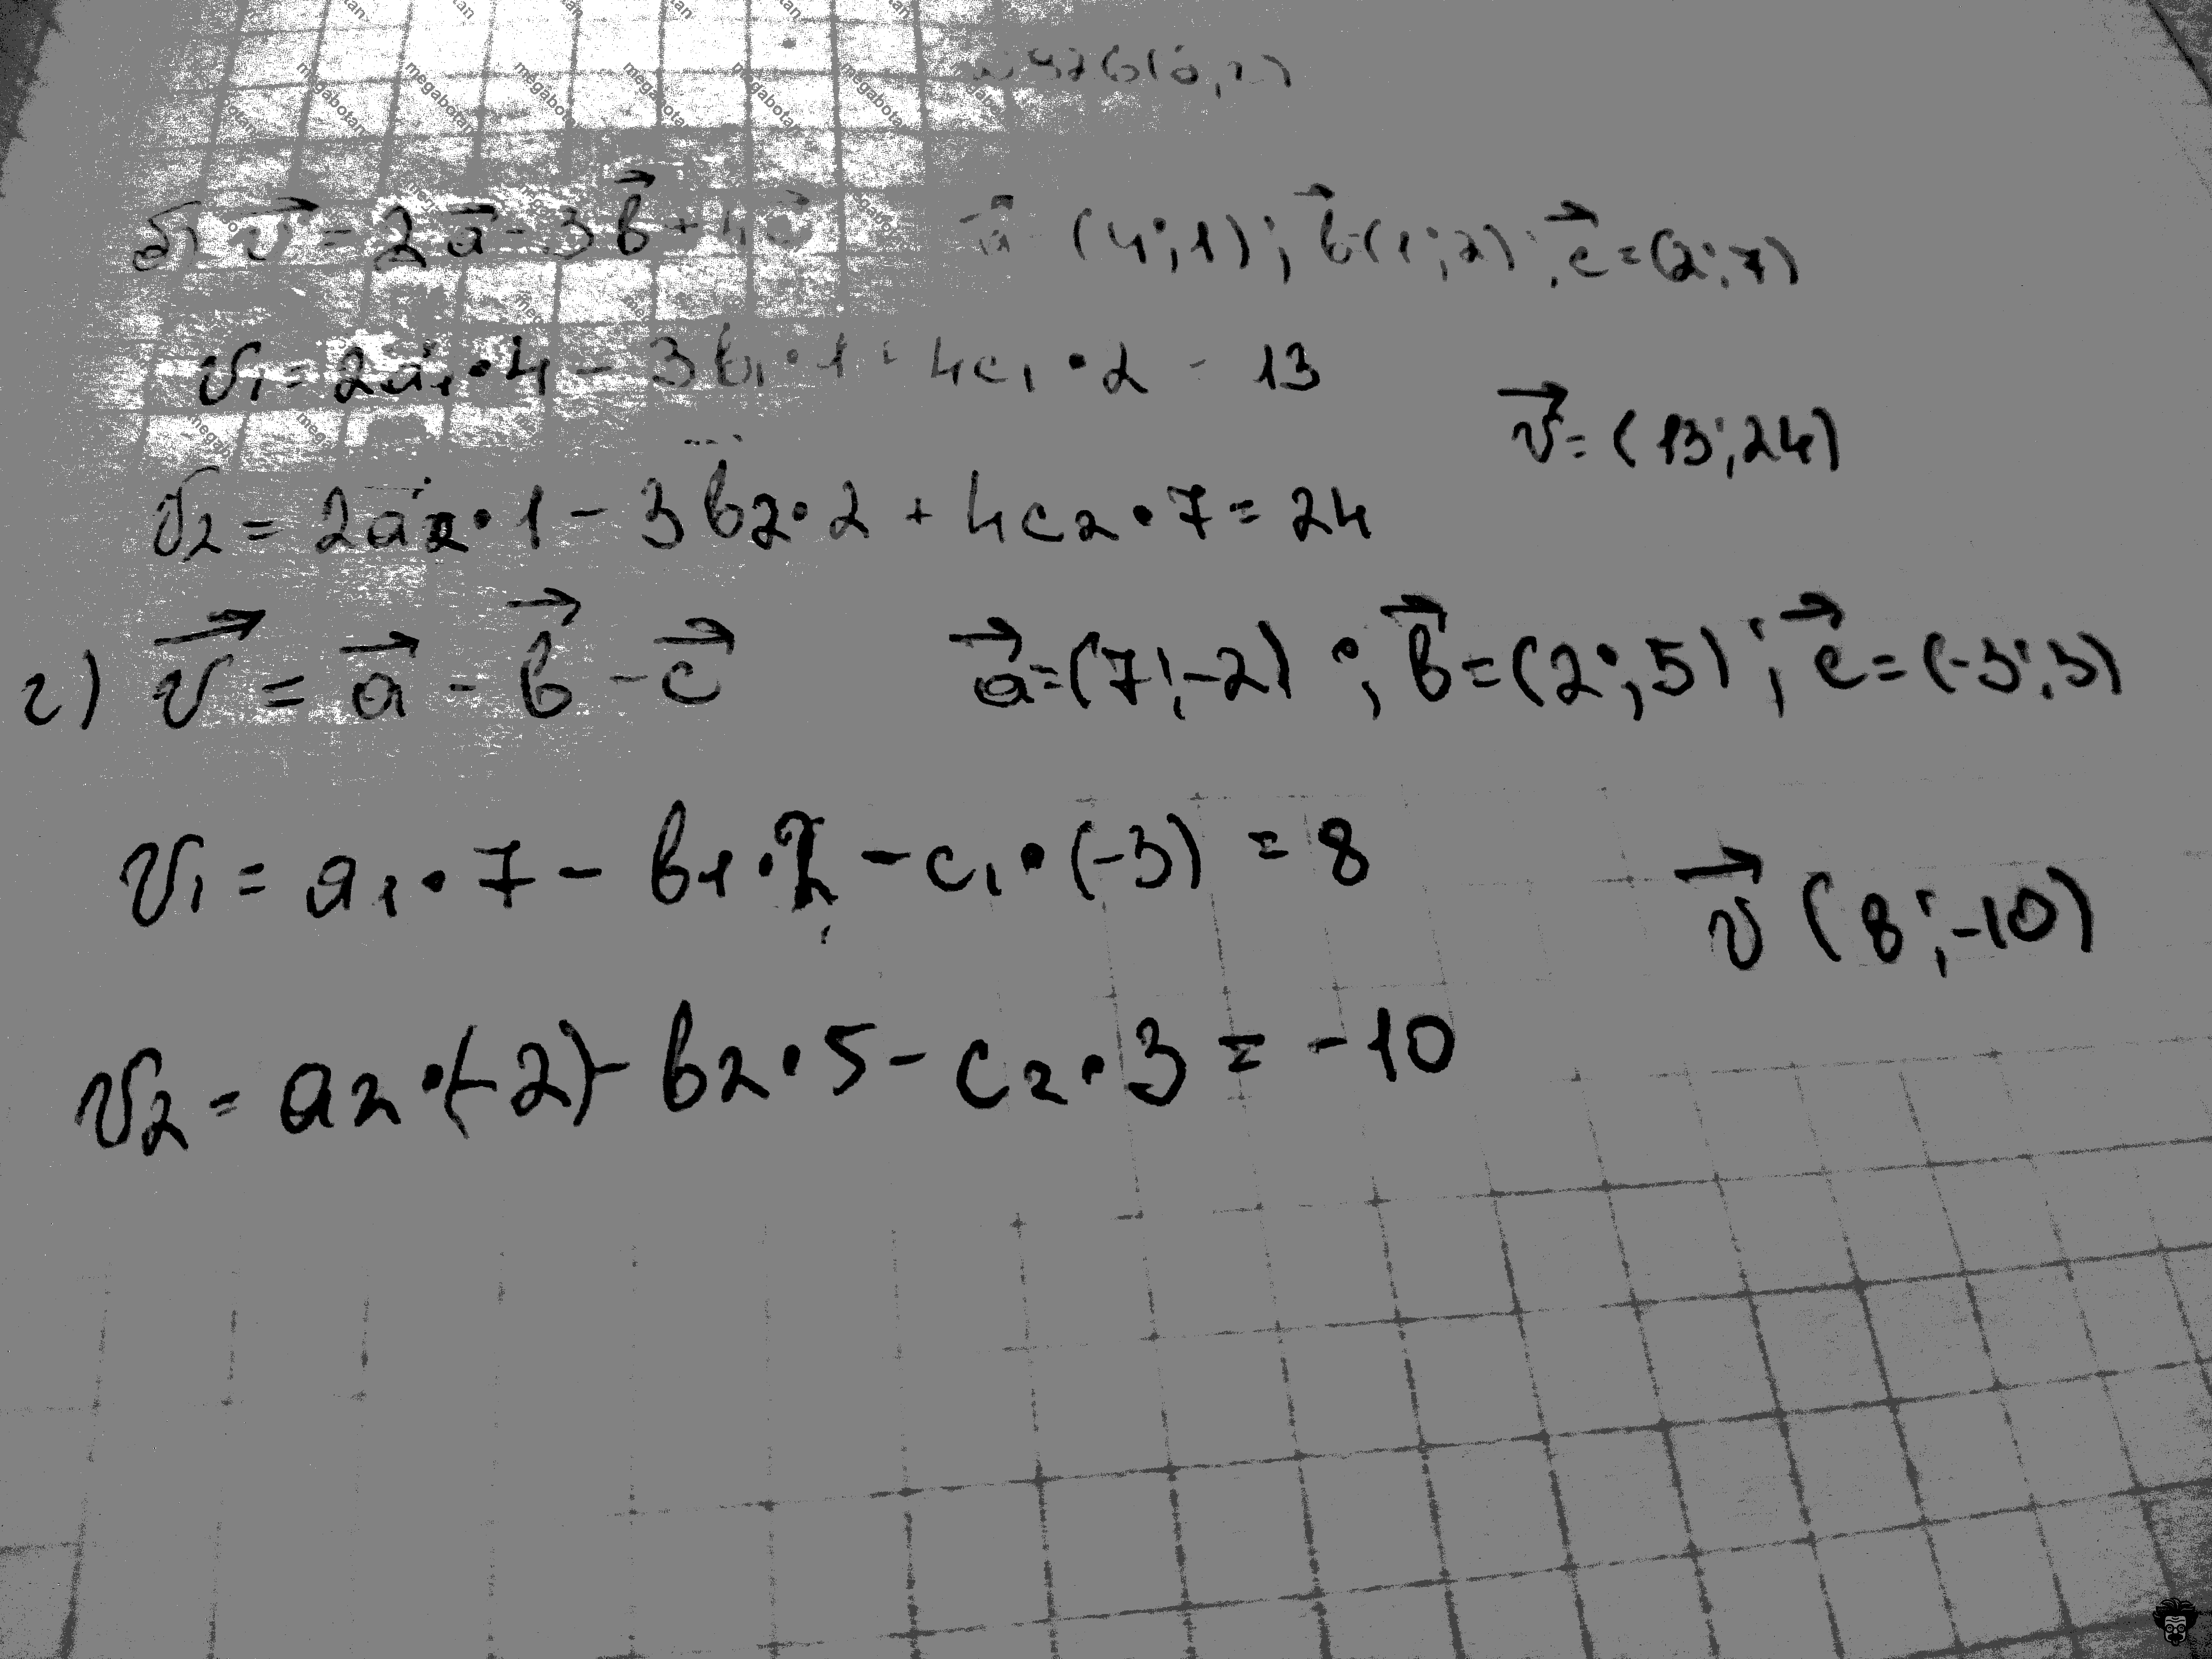 б) v = 2a - 3b + 4c a (4;1); b(1;2); c=(2;7)
v₁ = 2a₁·4 - 3b₁·1 + 4c₁·2 = 13
v = (13;24)
v₂ = 2a₂·1 - 3b₂·2 + 4c₂·7 = 24
г) v = a - b - c a=(7;-2); b=(2;5); c=(-3;3)
v₁ = a₁·7 - b₁·2 - c₁·(-3) = 8
v (8;-10)
v₂ = a₂·(-2) - b₂·5 - c₂·3 = -10